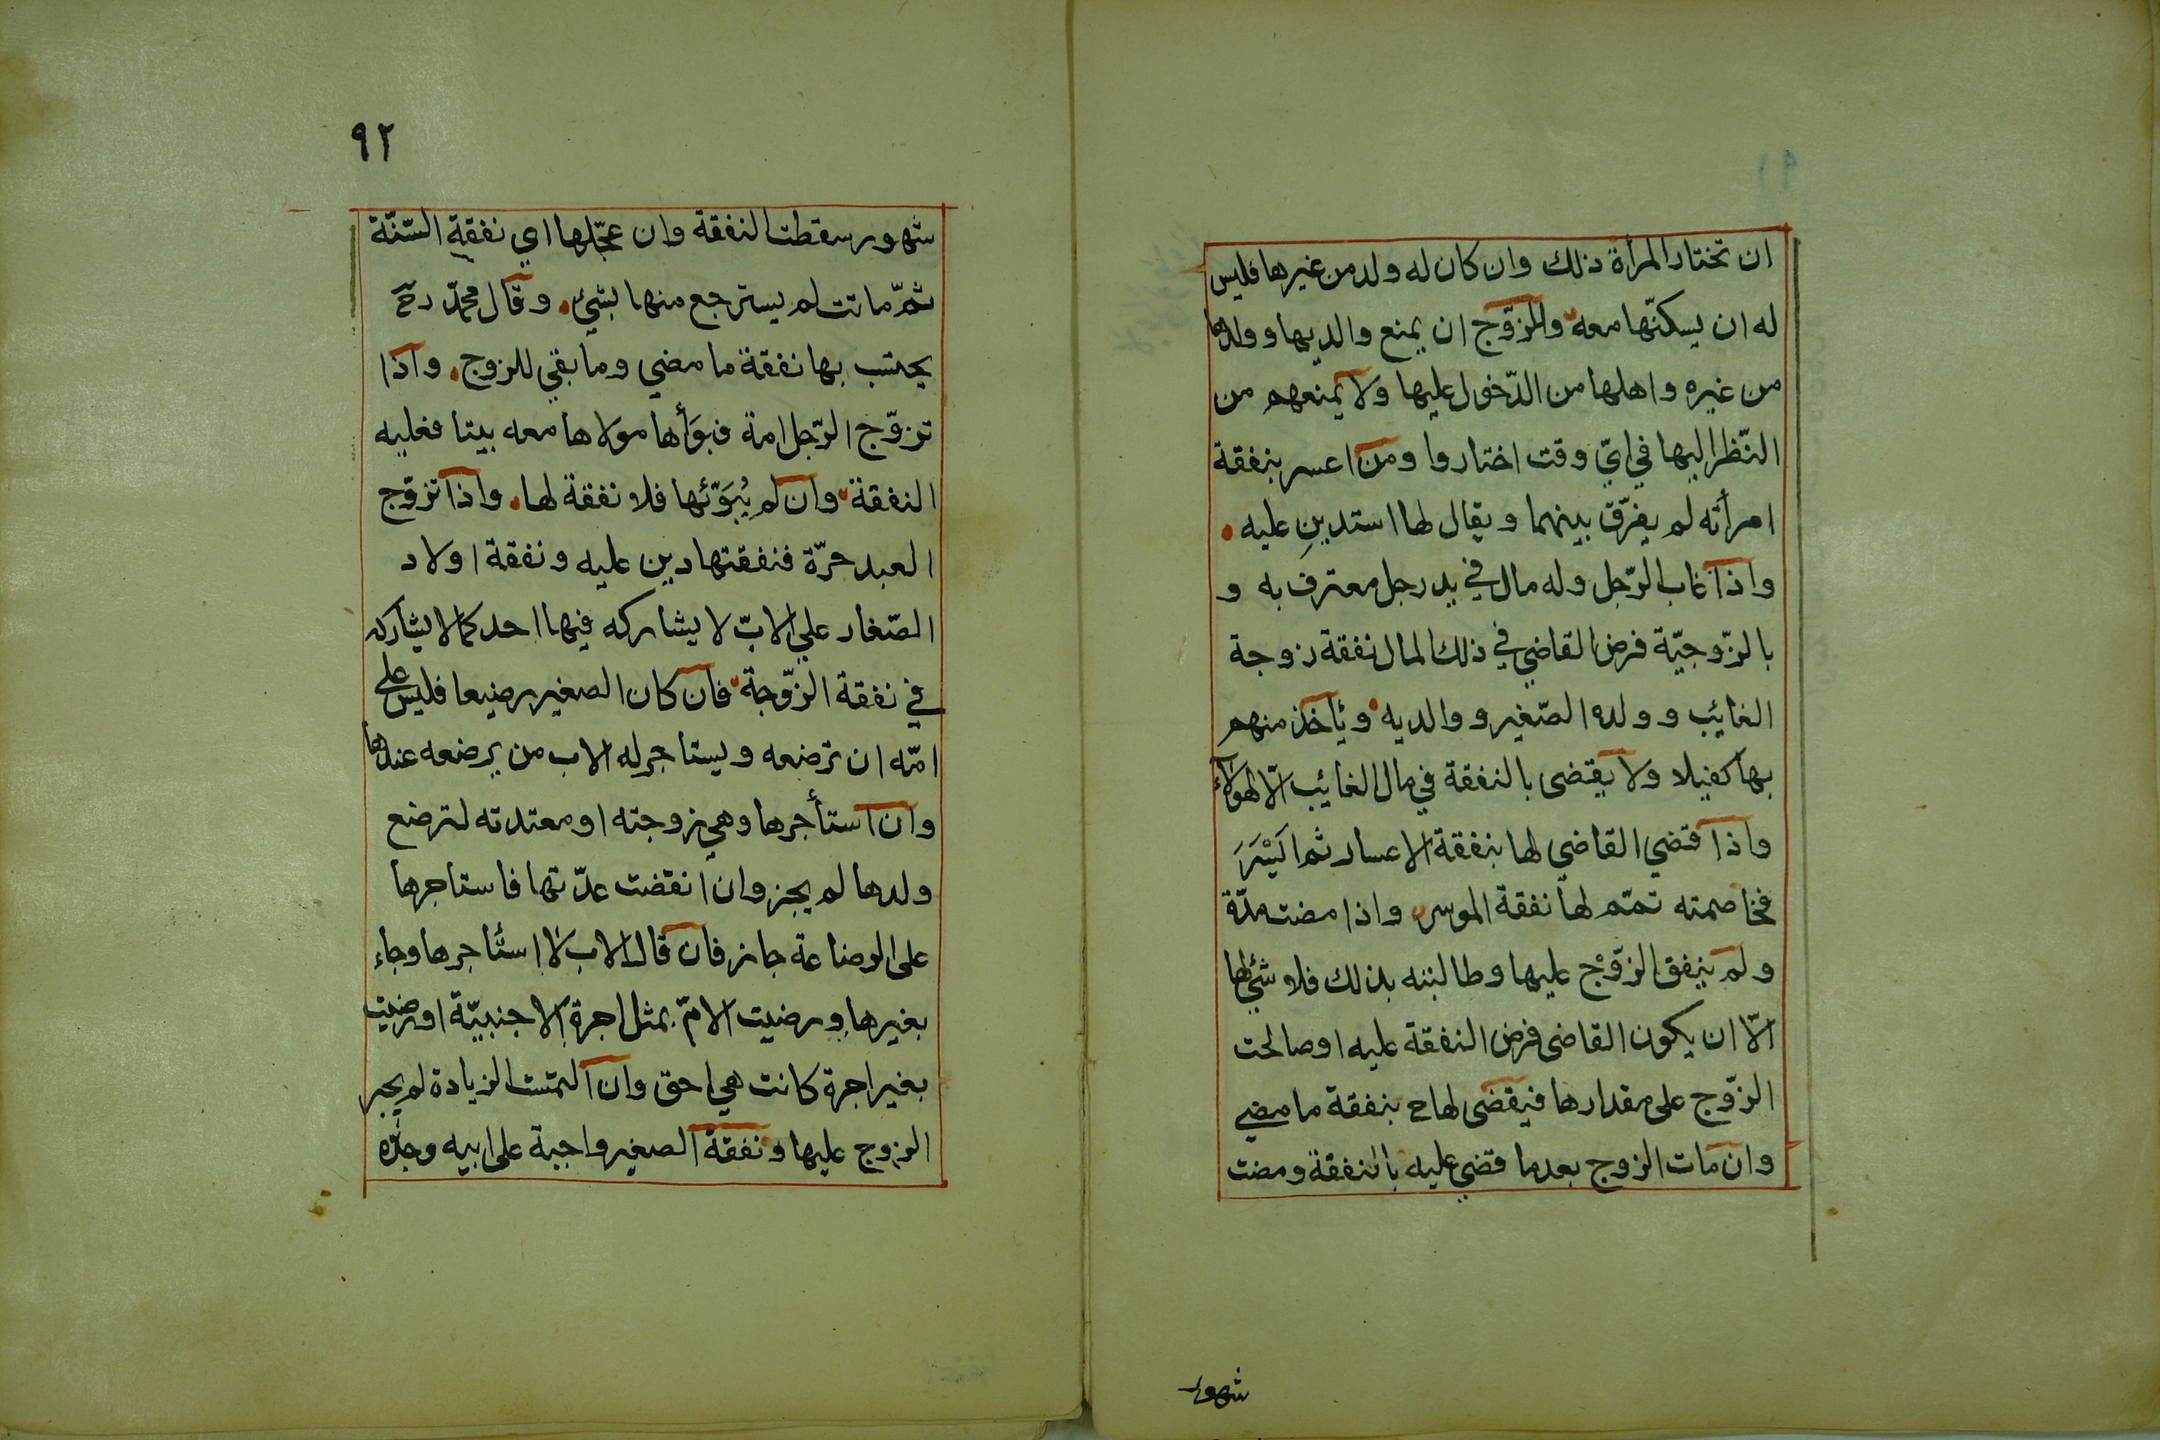 ان تختار المرأة ذلك وان كان له ولد من غيرها فليس
له ان يسكنّها معه وللزوّج ان يمنع والديها وولدها
من غيره واهلها من الدّخول عليها ولا يمنعهم من
النّظر اليها في ايّ وقت اختاروا ومن اعسر بنفقة
امرأته لم يفرّق بينهما ويقال لها استديني عليه
واذا غاب الرّجل وله مال في يد رجل معترف به و
بالزّوجيّة فرض القاضي في ذلك المال نفقة زوجة
الغائب وولده الصّغير ووالديه ويأخذ منهم
بها كفيلا ولا يقتضى بالنفقة في مال الغائب الّا لهؤلاء
واذا قضي القاضي لها بنفقة الاعسار ثم ايسر
فخاصمته تمّم لها نفقة الموسر واذا مضت مدّة
ولم ينفق الزوّج عليها وطالبته بذلك فلا شئ لها
الّا ان يكون القاضى فرض النفقة عليه او صالحت
الزوّج على مقدارها فيقضى لها ح بنفقة ما مضي
وان مات الزوج بعدما قضي عليه بالنفقة ومضت
شهور
٩٢
شهور سقطت النفقة وان عجّلها اي نفقة السّنّة
ثمّ ماتت لم يسترجع منها بشئ وقال محمّد رح
يحتسب بها نفقة ما مضي وما بقي للزوج واذا
تزوّج الرّجل امة فبوّأها مولاها معه بيتا فعليه
النفقة وان لم يُبَوّئها فلا نفقة لها واذا تزوّج
العبد حرّة فنفقتها دين عليه ونفقة اولاد
الصّغار علي الابّ لا يشاركه فيها احد كما لا يشاركه
في نفقة الزّوجة فان كان الصغير رضيعا فليس على
امّه ان ترضعه ويستاجر له الاب من يرضعه عندها
وان استأجرها وهي زوجته او معتدته لترضع
ولدها لم يجز وان انقضت عدّتها فاستاجرها
على الرضاعة جاز فان قال الاب لا استأجرها وجاء
بغيرها ورضيت الامّ بمثل اجرة الاجنبيّة او رضيت
بغير اجرة كانت هي احق وان التمست الزيادة لم يجبر
الزوج عليها ونفقة الصغير واجبة على ابيه وجدّه